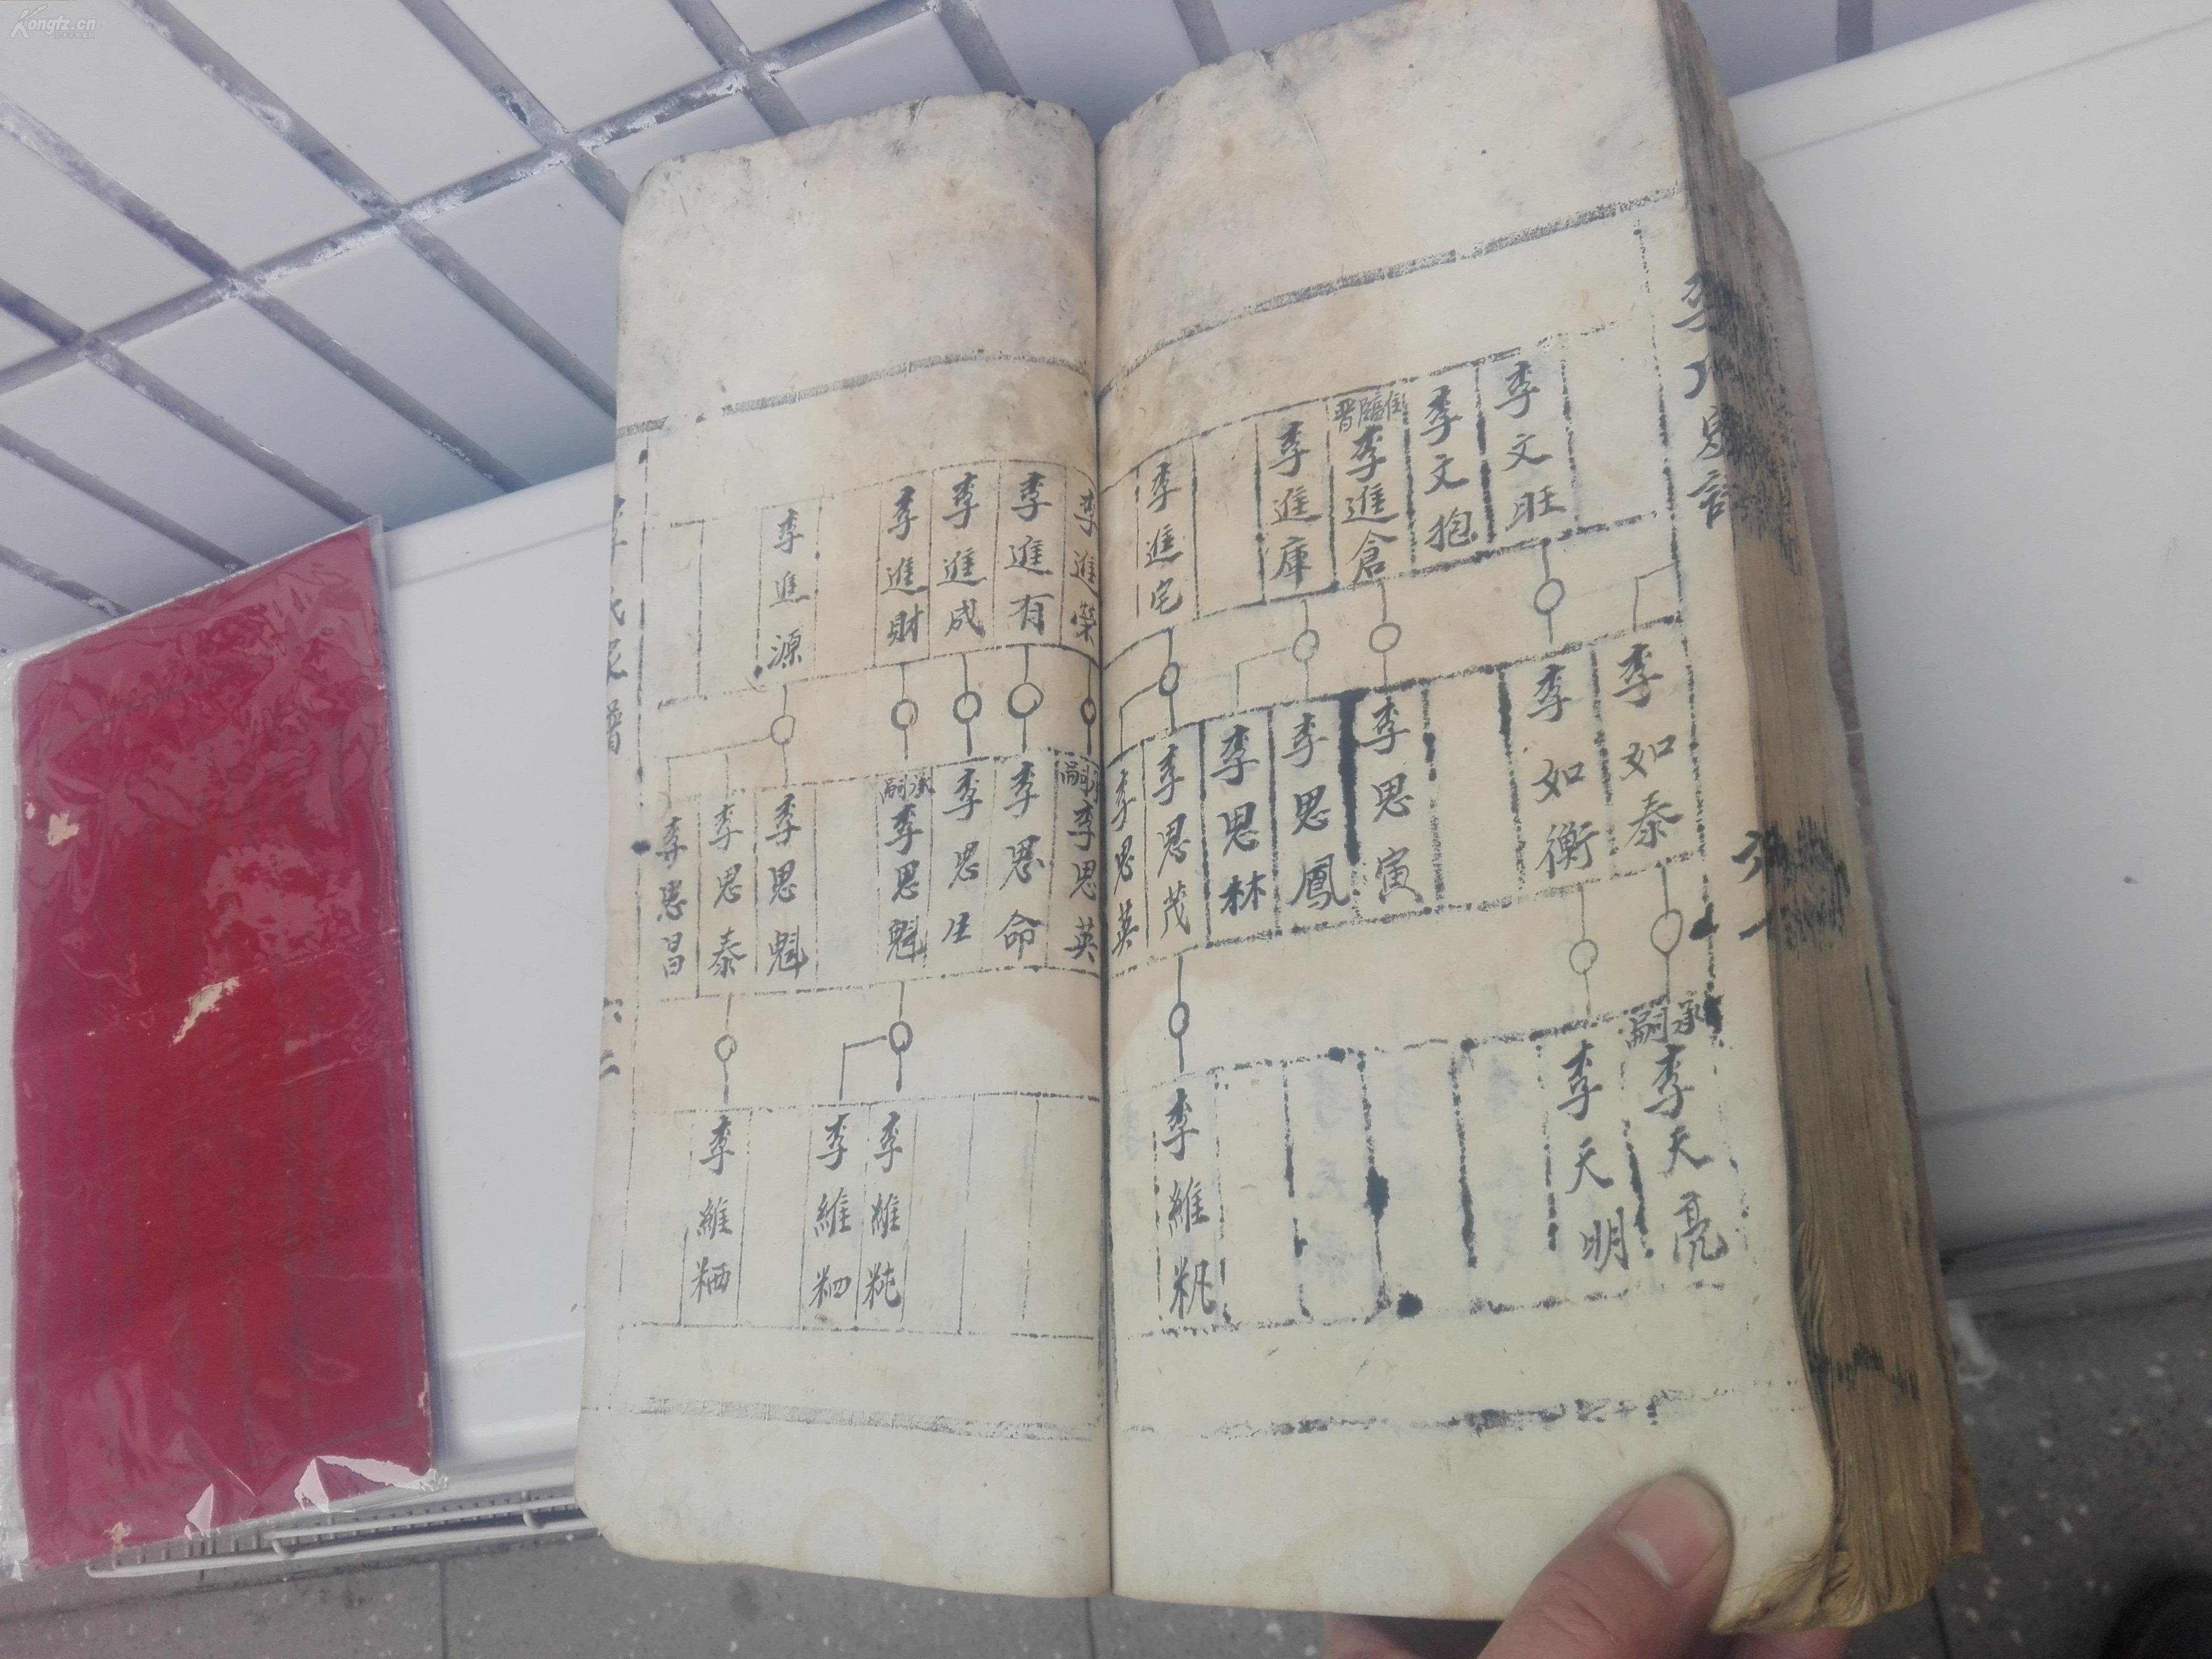 李文旺
李文抱
住臨晋
李進倉
李進庫
李進宅
李如泰
李如衡
李思寅
李思鳳
李思林
李思茂
李思英
承嗣
李天亮
李天明
李維籸
李進榮
李進有
李進成
李進財
李進源
嗣
李思英
李思命
李思生
承嗣
李思魁
李思魁
李思泰
李思昌
李維
李維
李維粞
李氏家譜
六二
Kongfz.cn